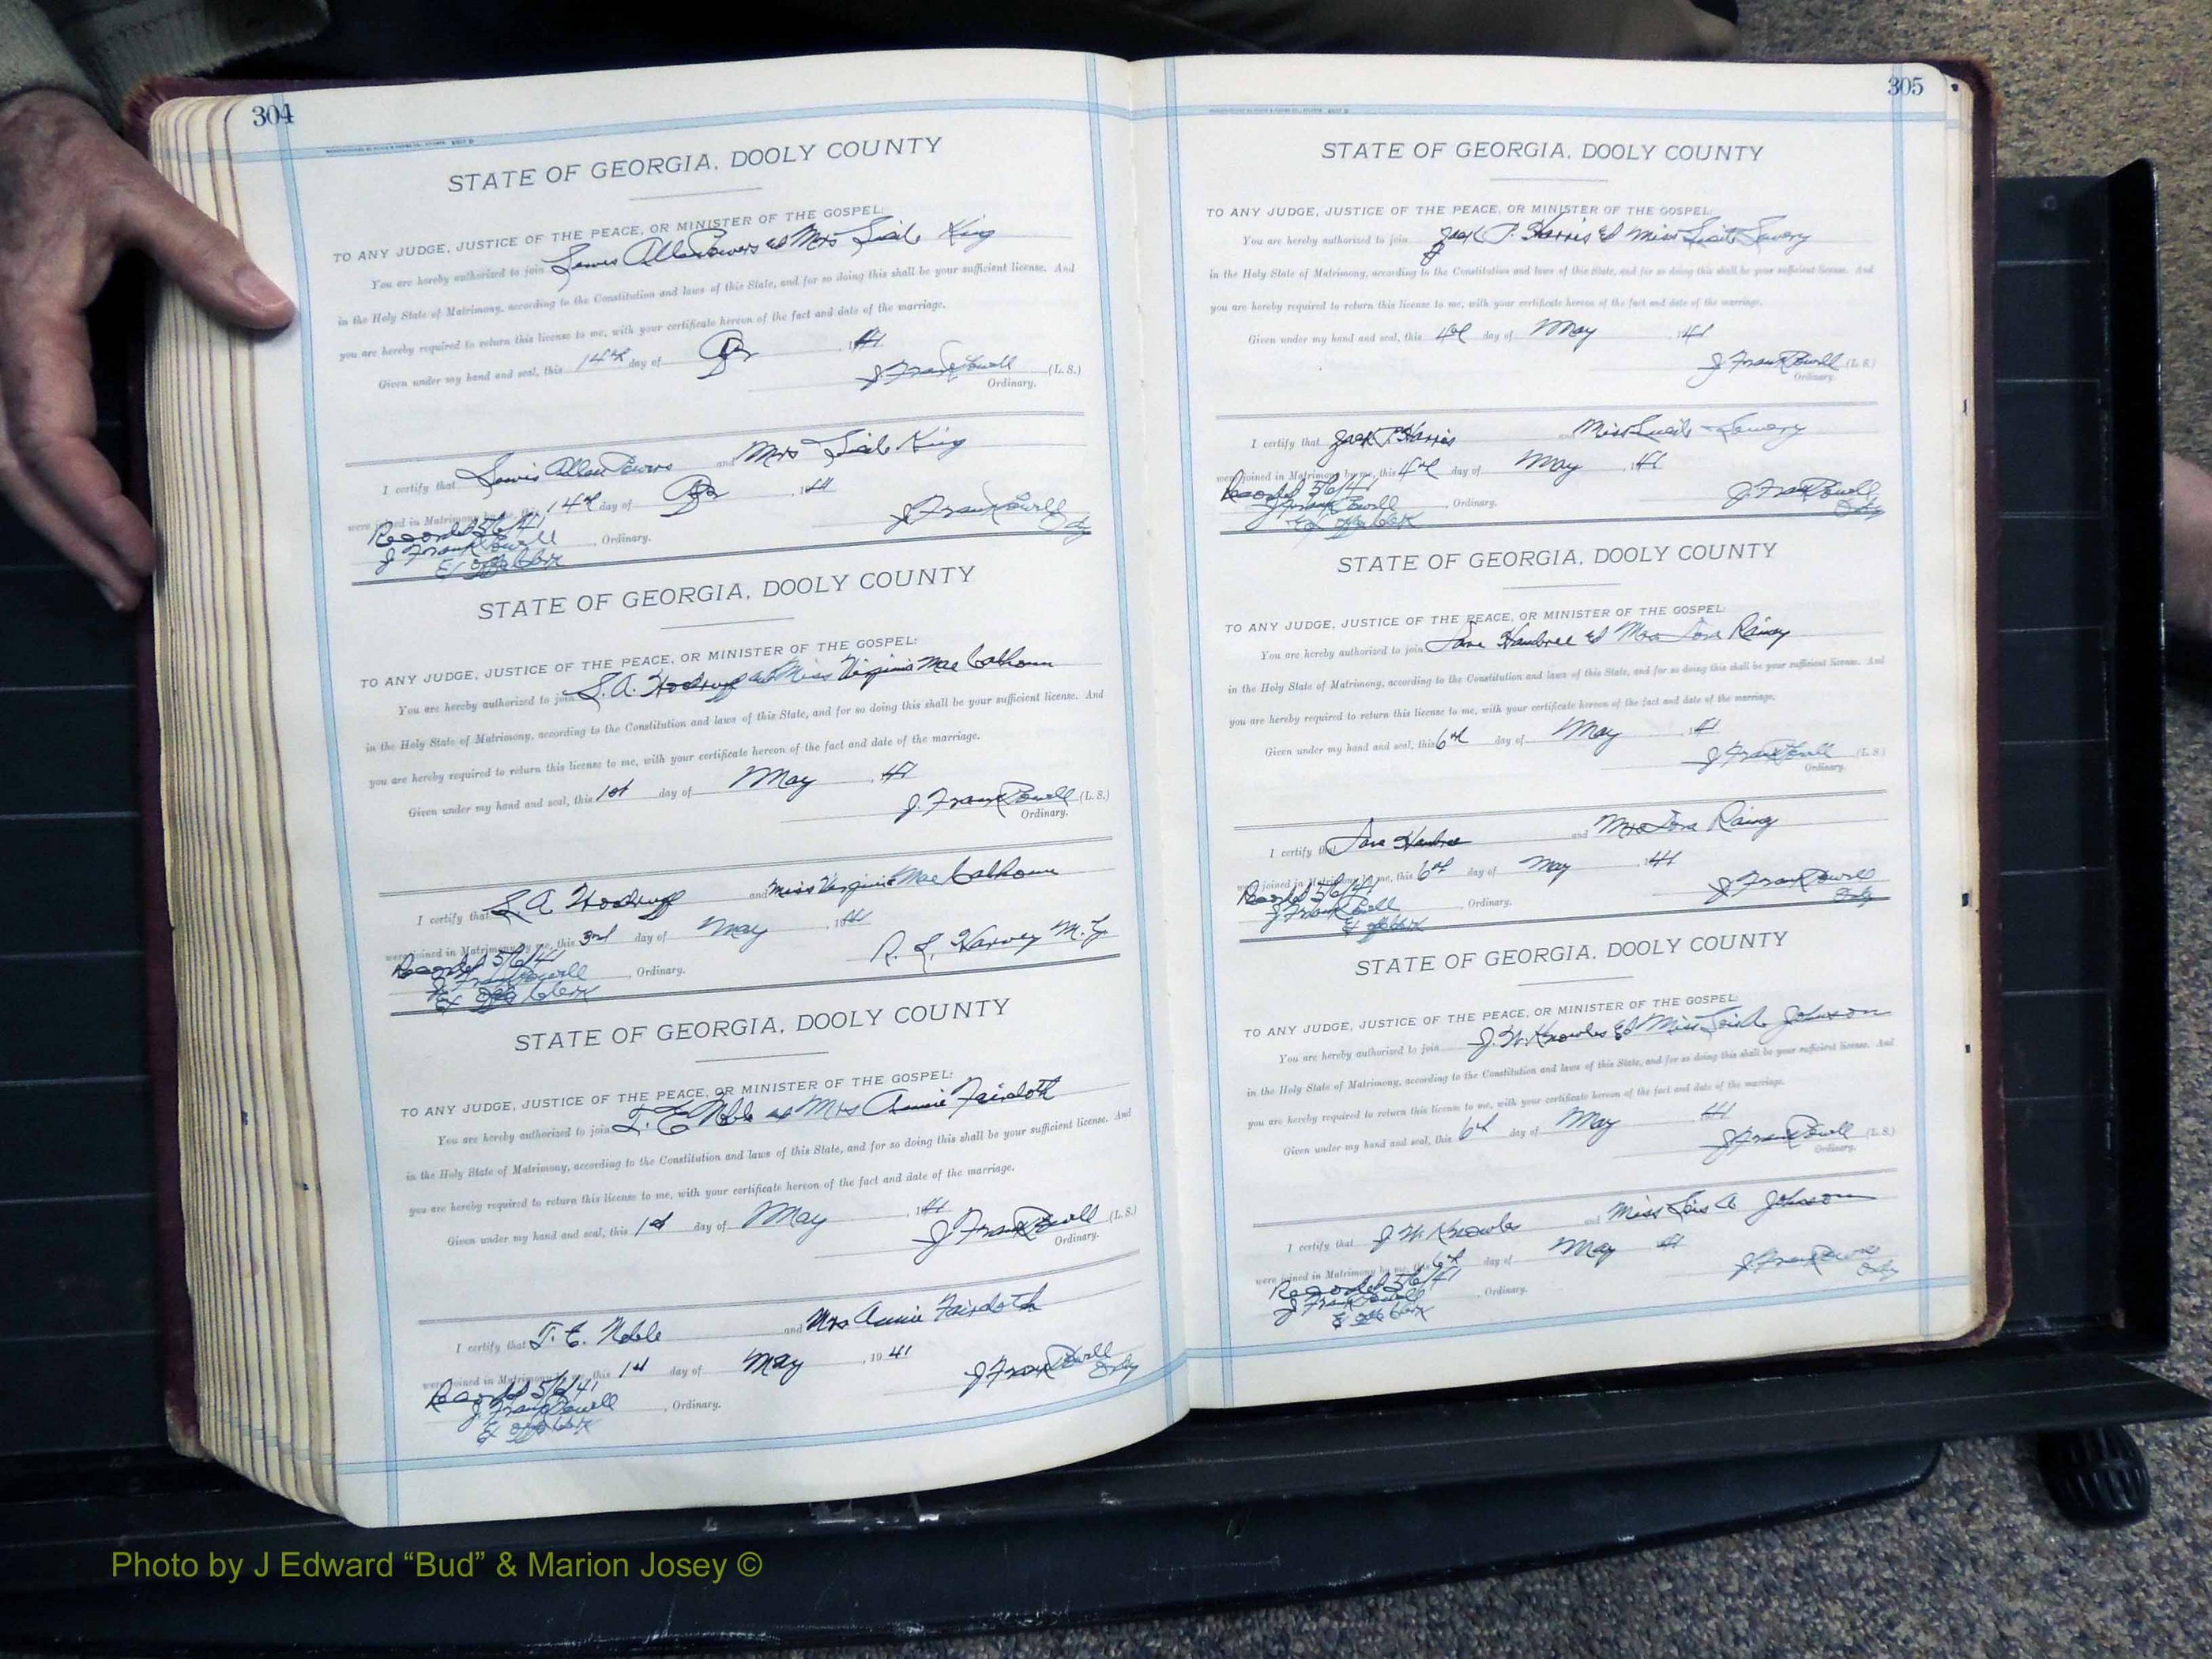 304
STATE OF GEORGIA, DOOLY COUNTY
TO ANY JUDGE, JUSTICE OF THE PEACE, OR MINISTER OF THE GOSPEL:
You are hereby authorized to join Lewis Allen Powers and Mrs King
in the Holy State of Matrimony, according to the Constitution and laws of this State, and for so doing this shall be your sufficient license. And
you are hereby required to return this license to me, with your certificate hereon of the fact and date of the marriage.
Given under my hand and seal, this 14th day of Apr , 1941
J. Frank Powell (L. S.)
Ordinary.
I certify that Lewis Allen Powers and Mrs King
were joined in Matrimony by me, this 14th day of Apr , 1941
Recorded 5/6/41
J. Frank Powell , Ordinary. J. Frank Powell Ordy
Ex Officio Clerk
STATE OF GEORGIA, DOOLY COUNTY
TO ANY JUDGE, JUSTICE OF THE PEACE, OR MINISTER OF THE GOSPEL:
You are hereby authorized to join L. A. Woodruff and Miss Virginia Mae Calhoun
in the Holy State of Matrimony, according to the Constitution and laws of this State, and for so doing this shall be your sufficient license. And
you are hereby required to return this license to me, with your certificate hereon of the fact and date of the marriage.
Given under my hand and seal, this 1st day of May , 1941
J. Frank Powell (L. S.)
Ordinary.
I certify that L. A. Woodruff and Miss Virginia Mae Calhoun
were joined in Matrimony by me, this 3rd day of May , 1941
Recorded 5/6/41 R. L. Harvey M. G.
J. Frank Powell , Ordinary.
Ex Officio Clerk
STATE OF GEORGIA, DOOLY COUNTY
TO ANY JUDGE, JUSTICE OF THE PEACE, OR MINISTER OF THE GOSPEL:
You are hereby authorized to join T. E. Noble and Mrs Annie Faircloth
in the Holy State of Matrimony, according to the Constitution and laws of this State, and for so doing this shall be your sufficient license. And
you are hereby required to return this license to me, with your certificate hereon of the fact and date of the marriage.
Given under my hand and seal, this 1st day of May , 1941
J. Frank Powell (L. S.)
Ordinary.
I certify that T. E. Noble and Mrs Annie Faircloth
were joined in Matrimony by me, this 1st day of May , 1941
Recorded 5/6/41 J. Frank Powell Ordy
J. Frank Powell , Ordinary.
Ex Officio Clerk
305
STATE OF GEORGIA, DOOLY COUNTY
TO ANY JUDGE, JUSTICE OF THE PEACE, OR MINISTER OF THE GOSPEL:
You are hereby authorized to join Jack P. Harris and Miss
in the Holy State of Matrimony, according to the Constitution and laws of this State, and for so doing this shall be your sufficient license. And
you are hereby required to return this license to me, with your certificate hereon of the fact and date of the marriage.
Given under my hand and seal, this 4th day of May , 1941
J. Frank Powell (L. S.)
Ordinary.
I certify that Jack P. Harris and Miss
were joined in Matrimony by me, this 4th day of May , 1941
Recorded 5/6/41 J. Frank Powell
J. Frank Powell , Ordinary. Ordy
Ex Officio Clerk
STATE OF GEORGIA, DOOLY COUNTY
TO ANY JUDGE, JUSTICE OF THE PEACE, OR MINISTER OF THE GOSPEL:
You are hereby authorized to join Hambree and Mrs Rainey
in the Holy State of Matrimony, according to the Constitution and laws of this State, and for so doing this shall be your sufficient license. And
you are hereby required to return this license to me, with your certificate hereon of the fact and date of the marriage.
Given under my hand and seal, this 6th day of May , 1941
J. Frank Powell (L. S.)
Ordinary.
I certify that Hambree and Mrs Rainey
were joined in Matrimony by me, this 6th day of May , 1941
Recorded 5/6/41 J. Frank Powell
J. Frank Powell , Ordinary. Ordy
Ex Officio Clerk
STATE OF GEORGIA, DOOLY COUNTY
TO ANY JUDGE, JUSTICE OF THE PEACE, OR MINISTER OF THE GOSPEL:
You are hereby authorized to join J. W. Knowles and Miss Lois A Johnson
in the Holy State of Matrimony, according to the Constitution and laws of this State, and for so doing this shall be your sufficient license. And
you are hereby required to return this license to me, with your certificate hereon of the fact and date of the marriage.
Given under my hand and seal, this 6th day of May , 1941
J. Frank Powell (L. S.)
Ordinary.
I certify that J. W. Knowles and Miss Lois A Johnson
were joined in Matrimony by me, this 6th day of May 1941
Recorded 5/6/41 J. Frank Powell
J. Frank Powell , Ordinary. Ordy
Ex Officio Clerk
Photo by J Edward “Bud” & Marion Josey ©